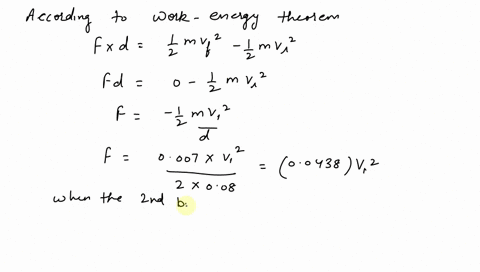 According to work-energy theorem
F x d = 1/2 m v_f^2 - 1/2 m v_i^2
Fd = 0 - 1/2 m v_i^2
F = -1/2 m v_i^2 / d
F = 0.007 x v_i^2 / 2 x 0.08 = (0.0438) v_i^2
when the 2nd b.